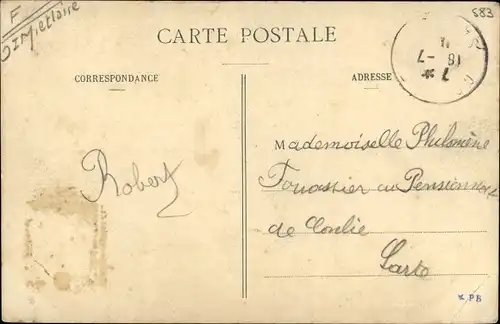 F
583
CARTE POSTALE
CORRESPONDANCE
ADRESSE
18 - 7
Mademoiselle Philomène
Fouassier au Pensionnat
de Conlie
Sarte
Robert
* PB